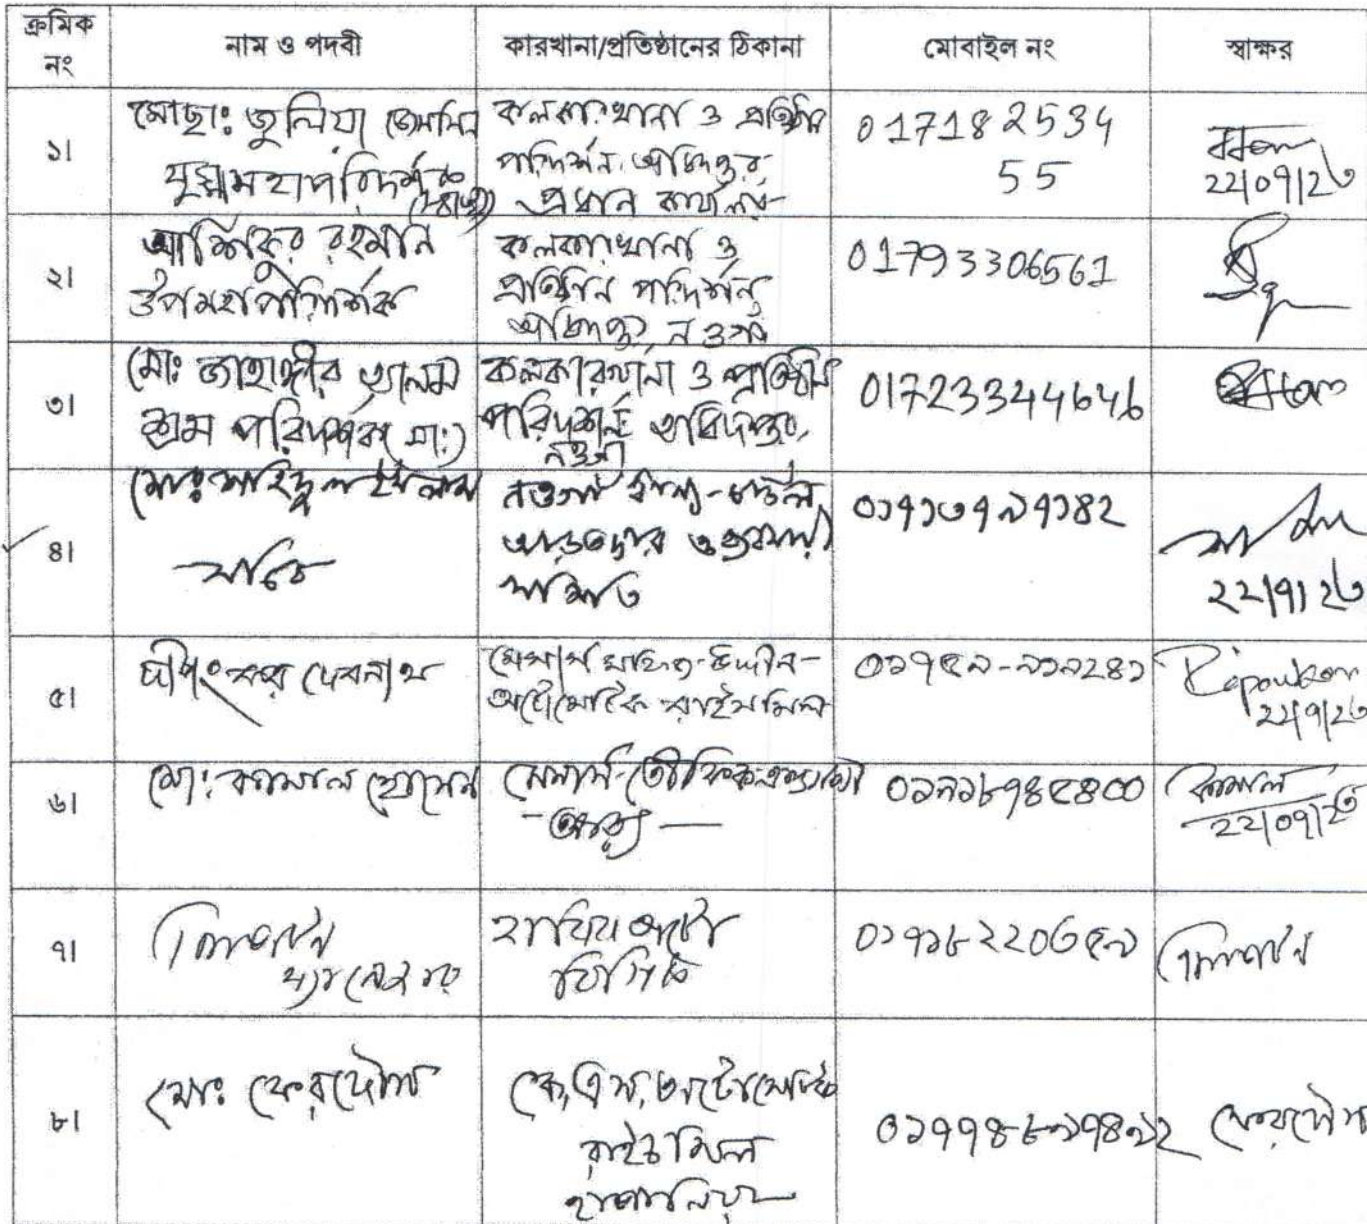 ক্রমিক নং
নাম ও পদবী
কারখানা/প্রতিষ্ঠানের ঠিকানা
মোবাইল নং
স্বাক্ষর
১।
মোছাঃ জুলিয়া জেসমিন
যুগ্মমহাপরিদর্শক
(স্বাস্থ্য)
কলকারখানা ও প্রতিষ্ঠান
পরিদর্শন অধিদপ্তর,
প্রধান কার্যালয়
017182534
55
22/09/২৩
২।
আশিকুর রহমান
উপমহাপরিদর্শক
কলকারখানা ও
প্রতিষ্ঠান পরিদর্শন
অধিদপ্তর, নওগাঁ
01793306561
৩।
মোঃ জাহাঙ্গীর আলম
শ্রম পরিদর্শক (সাঃ)
কলকারখানা ও প্রতিষ্ঠান
পরিদর্শন অধিদপ্তর,
নওগাঁ
01723344646
৪।
মোঃ শহিদুল ইসলাম
সচিব
নওগাঁ ধান্য-চাউল
আড়তদার ও ব্যবসায়ী
সমিতি
০১৭১৩৭৯১১৪২
২২/৭/২৩
৫।
দীপংকর দেবনাথ
মেসার্স মফিজ-উদ্দীন-
অটোমেটিক রাইসমিল
০১৭৫৯-৯১৯২৪১
২২/৭/২৩
৬।
মোঃ কামাল হোসেন
মেসার্স-তৌফিক
০১৯১৮৭৪৫৪০০
কামাল
২২/০৭/২৩
৭।
ম্যানেজার
অটো
০১৭১৮২২০৩৫৯
৮।
মোঃ ফেরদৌস
কে,এস, অটোমেটিক
রাইচ মিল
০১৭৭৪৮৯৭৪৯২
ফেরদৌস